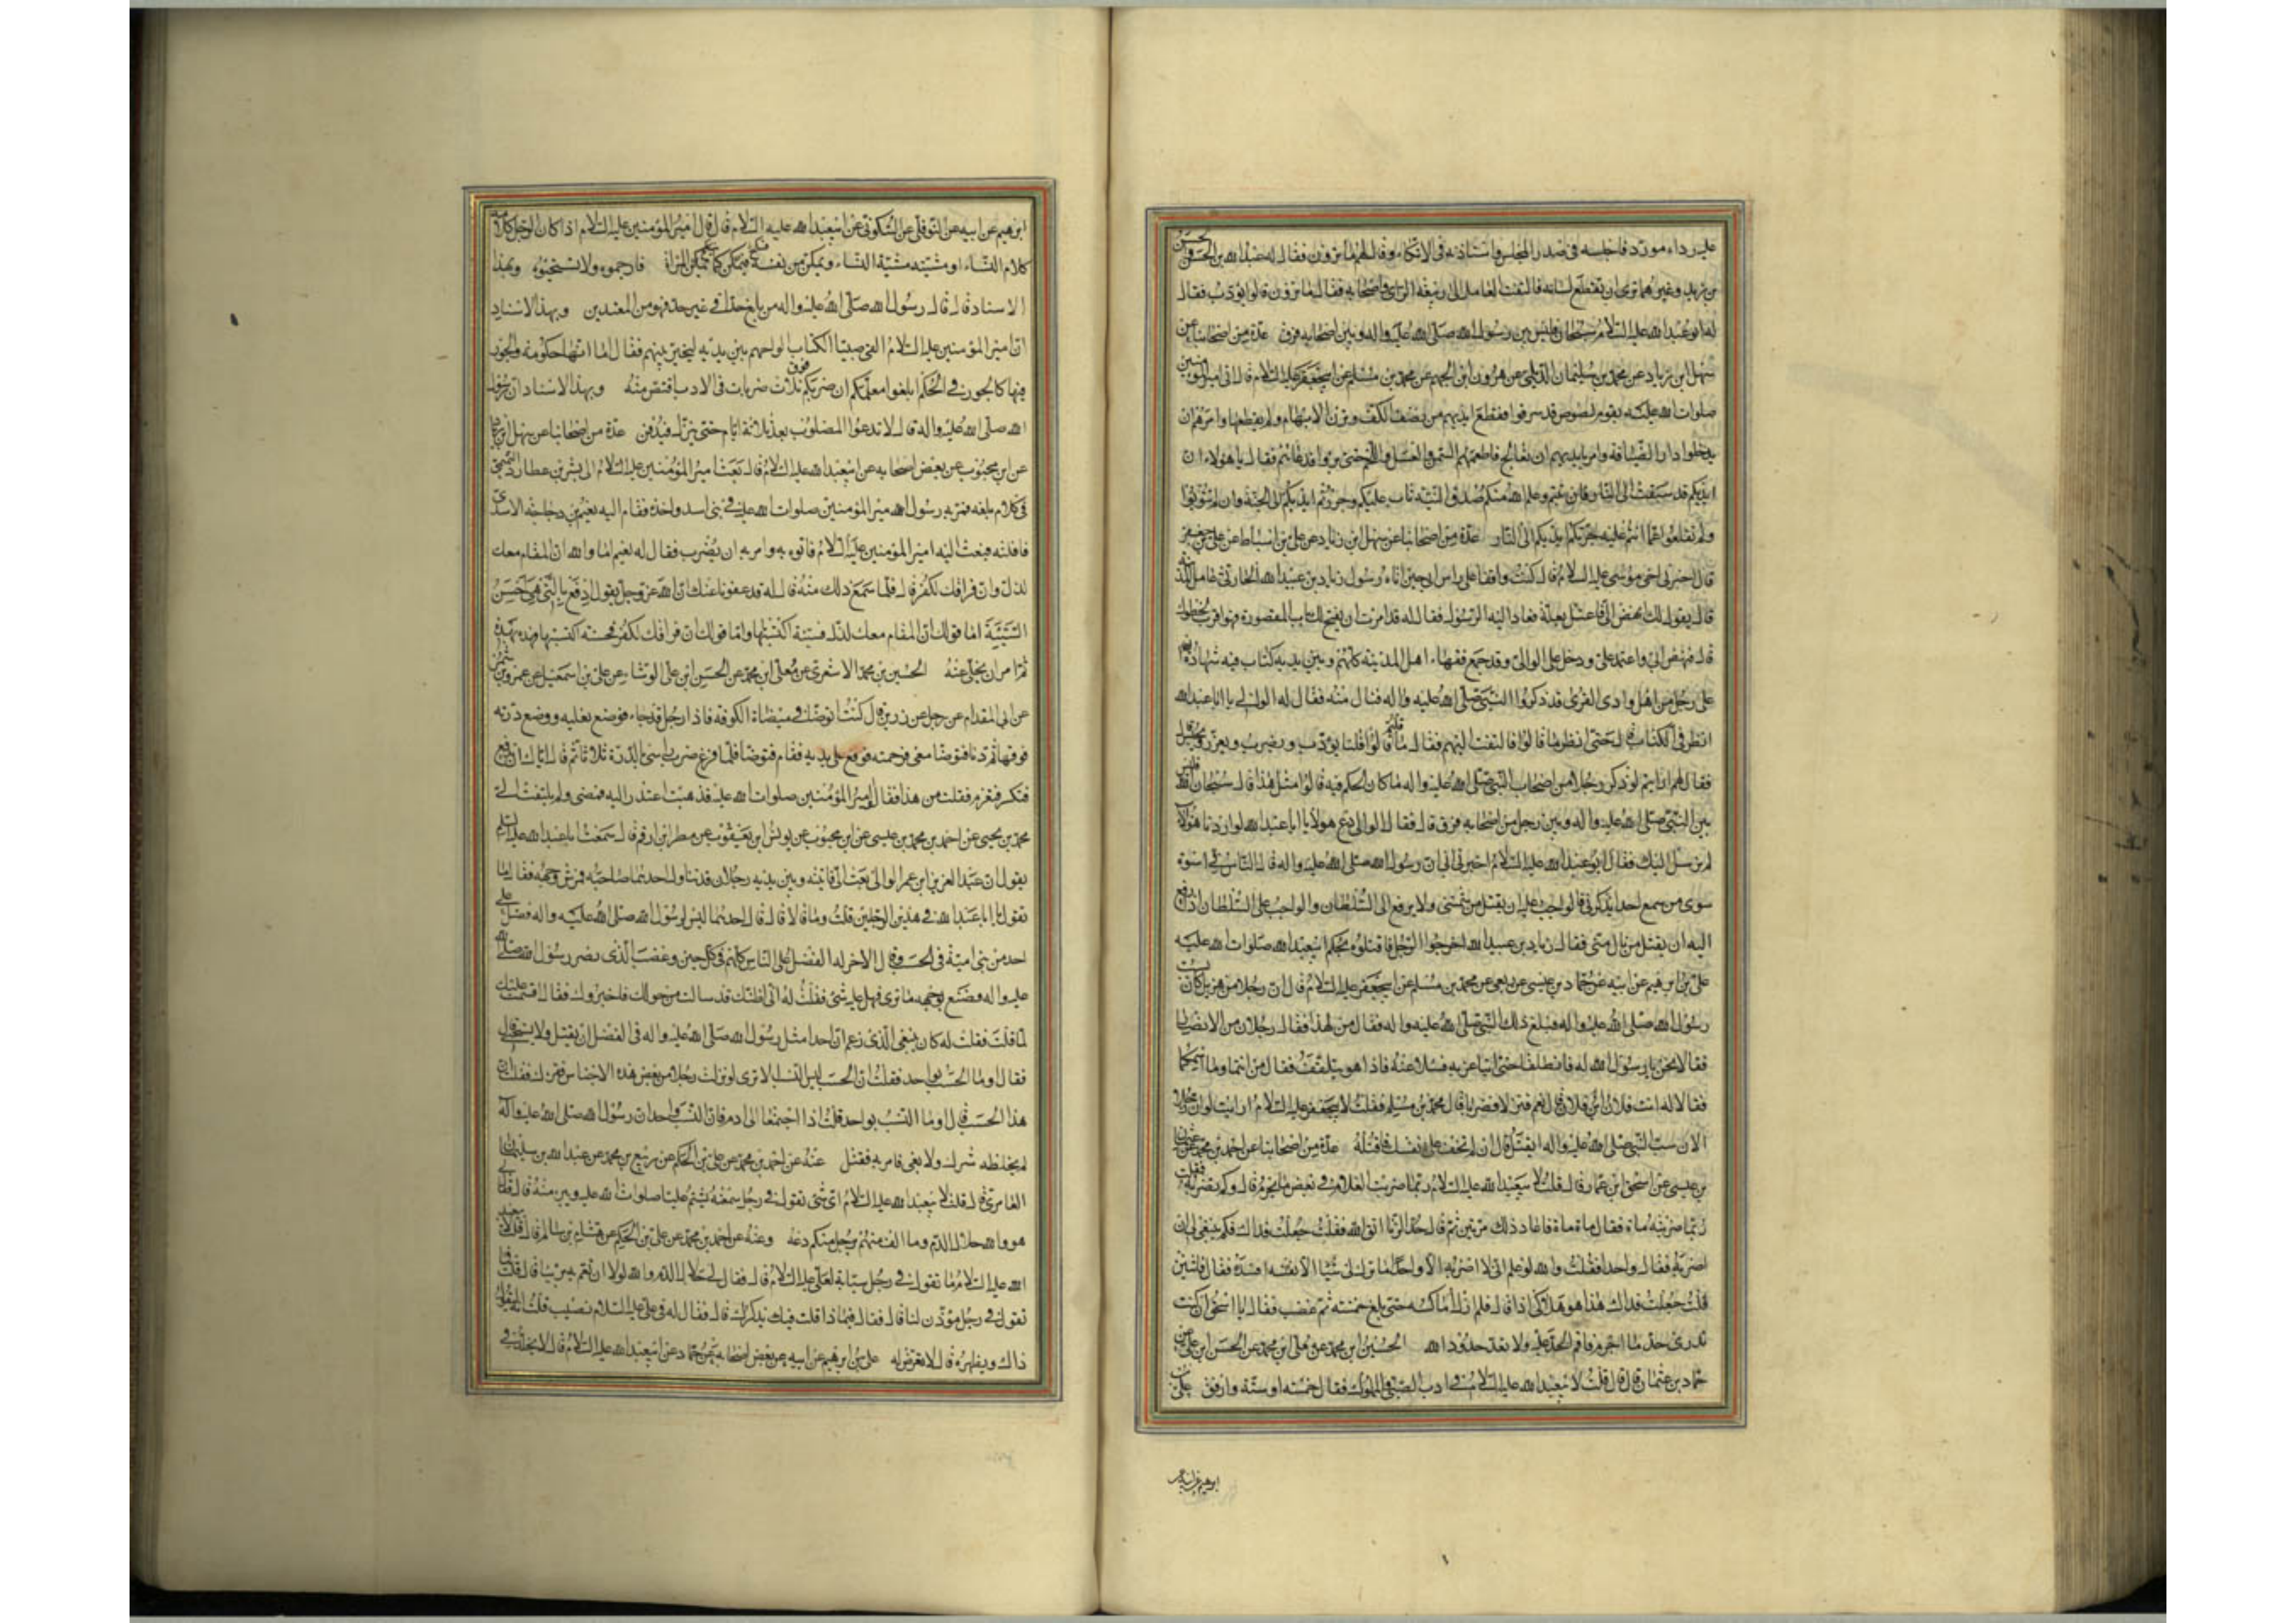 عليه رداء مورد فاجلسه فى صدر المجلس واستاذنه فى الاتكاء وقال لهم ما ترون فقال له عبدالله بن الحسن والحسن
بن زيد وغيرهما نرى ان يقطع لسانه فالتفت العامل الى ربيعة الراى واصحابه فقال ما ترون قالوا يؤدب فقال
له ابو عبدالله عليه السلام سبحان الله فليس بين رسول الله صلى الله عليه واله وبين اصحابه فرق عدة من اصحابنا عن
سهل ابن زياد عن محمد بن سليمان الديلمى عن هرون ابن الجهم عن محمد بن مسلم عن ابيجعفر عليه السلام قال اتى امير المؤمنين
صلوات الله عليه بقوم لصوص قد سرقوا فقطع ايديهم من نصف الكف وترك الابهام ولم يقطعها وامرهم ان
يدخلوا دار الضيافة وامر بايديهم ان تعالج فاطعمهم السمن والعسل واللحم حتى برؤا فدعاهم فقال يا هؤلاء ان
ايديكم قد سبقت الى النار فان تبتم وعلم الله منكم صدق النية تاب عليكم وجررتم ايديكم الى الجنة وان لم تتوبوا
ولم تقلعوا عما انتم عليه جرتكم ايديكم الى النار عدة من اصحابنا عن سهل ابن زياد عن على بن اسباط عن على بن جعفر
قال اخبرنى اخى موسى عليه السلام قال كنت واقفا على راس ابى حين اتاه رسول زياد بن عبيدالله الحارثى عامل المدينة
قال يقول لك انهض الى فاعتل بعلة فعاد اليه الرسول فقال له قد امرت ان يفتح لك باب المقصورة فهو اقرب لخطوتك
قال فنهض ابى واعتمد على ودخل على الوالى وقد جمع فقهاء اهل المدينة كلهم وبين يديه كتاب فيه شهادة
على رجل من اهل وادى القرى قد ذكروا النبى صلى الله عليه واله فنال منه فقال له الوالى يا ابا عبدالله
انظر فى الكتاب قال حتى انظر ما قالوا فالتفت اليهم فقال ما قلتم قالوا قلنا يؤدب ويضرب ويعزر ويحبس قال
فقال لهم ارايتم لو ذكر رجلا من اصحاب النبى صلى الله عليه واله ما كان الحكم فيه قالوا مثل هذا قال سبحان الله فليس
بين النبى صلى الله عليه واله وبين رجل من اصحابه فرق قال فقال الوالى دع هولاء يا ابا عبدالله لو اردنا هؤلاء
لم نرسل اليك فقال ابو عبدالله عليه السلام اخبرنى ابى ان رسول الله صلى الله عليه واله قال الناس فى اسوة
سوى من سمع احدا يذكرنى فالواجب عليه ان يقتل من شتمنى ولا يرفع الى السلطان والواجب على السلطان اذا رفع
اليه ان يقتل من نال منى فقال زياد بن عبيدالله اخرجوا الرجل فاقتلوه بحكم ابيعبدالله صلوات الله عليه
على بن ابرهيم عن ابيه عن حماد بن عيسى عن ربعى عن محمد بن مسلم عن ابيجعفر عليه السلام قال ان رجلا من هذيل كان يسب
رسول الله صلى الله عليه واله فبلغ ذلك النبى صلى الله عليه واله فقال من لهذا فقال رجلان من الانصار
فقالا نحن يا رسول الله له فانطلقا حتى اتيا عربه فسئلا عنه فاذا هو يتلقف فقال من انتما وما اسمكما
فقالا له انت فلان ابن فلان قال نعم فنزلا فضربا قال محمد بن مسلم فقلت لابيجعفر عليه السلام ارايت لو ان رجلا
الان سب النبى صلى الله عليه واله ايقتل قال ان لم تخف على نفسك فاقتله عدة من اصحابنا عن احمد بن محمد عن عثمان
بن عيسى عن اسحق ابن عمار قال قلت لابيعبدالله عليه السلام ربما ضربت الغلام فى بعض ما يجرم قال وكم تضربه فقلت
ربما ضربته ماة فقال ماة ماة فاعاد ذلك مرتين ثم قال حد الزنا اتق الله فقلت جعلت فداك فكم ينبغى لى ان
اضربه فقال واحدا فقلت والله لو علم انى لا اضربه الا واحدا ما ترك لى شيئا الا افسده فقال فاثنين
قلت جعلت فداك هذا هو هلاكى اذا قال فلم ازل اماكسه حتى بلغ خمسته ثم غضب فقال يا اسحق ان كنت
تدرى حد ما اجرم فاقم الحد عليه ولا تعد حدود الله الحسين ابن محمد عن معلى ابن محمد عن الحسن ابن على عن
حماد بن عثمان قال قلت لابيعبدالله عليه السلام فى ادب الصبى والمملوك فقال خمسته او ستة وارفق على بن
ابرهيم عن ابيه عن
ابرهيم عن ابيه عن النوفلى عن السكونى عن ابيعبدالله عليه السلام قال قال امير المؤمنين عليه السلام اذا كان الرجل كلامه
كلام النساء او مشيته مشية النساء ويمكن من نفسه فينكح كما تنكح المراة فارجموه ولا تستحيوه وبهذا
الاسناد قال قال رسول الله صلى الله عليه واله من بلغ حدا فى غير حد فهو من المعتدين وبهذا الاسناد
ان امير المؤمنين عليه السلام القى صبيان الكتاب الواحهم بين يديه ليخير بينهم فقال اما انها حكومة والجور
فيها كالجور فى الحكم ابلغوا معلمكم ان ضربكم فوق ثلاث ضربات فى الادب اقتص منه وبهذا الاسناد ان رسول
الله صلى الله عليه واله قال لا تدعوا المصلوب بعد ثلاثة ايام حتى ينزل فيدفن عدة من اصحابنا عن سهل ابن زياد
عن ابن محبوب عن بعض اصحابه عن ابيعبدالله عليه السلام قال بعث امير المؤمنين عليه السلام الى بشر بن عطارد التميمى
فى كلام بلغه فمر به رسول امير المؤمنين صلوات الله عليه فى بنى اسد واخذه فقام اليه نعيم بن دجاجة الاسدى
فافلته فبعث اليه امير المؤمنين عليه السلام فاتوه به وامر به ان يضرب فقال له نعيم اما والله ان المقام معك
لذل وان فراقك لكفر قال فلما سمع ذلك منه قال له قد عفونا عنك ان الله عز وجل يقول ادفع بالتى هى احسن
السيئة اما قولك ان المقام معك لذل فسيئة اكتسبتها واما قولك ان فراقك لكفر فحسنة اكتسبتها وهذه بهذه
ثم امر ان يخلى عنه الحسين بن محمد الاشعرى عن معلى ابن محمد عن الحسن ابن على الوشاء عن على بن اسمعيل عن عمرو بن شمر
عن ابى المقدام عن رجل عن رزين قال كنت اتوضا فى ميضاة الكوفة فاذا رجل قد جاء فوضع نعليه ووضع درته
فوقها ثم دنا فتوضا معى فزحمته فوقع على يديه فقام فتوضا فلما فرغ ضرب راسى بالدرة ثلاثا ثم قال اياك ان تدفع
فتكسر فتغرم فقلت من هذا فقالوا امير المؤمنين صلوات الله عليه فذهبت اعتذر اليه فمضى ولم يلتفت الى
محمد بن يحيى عن احمد بن محمد بن عيسى عن ابن محبوب عن يونس ابن يعقوب عن مطر ابن ارقم قال سمعت ابا عبدالله عليه السلم
يقول ان عبد العزيز ابن عمر الوالى بعث الى فاتيته وبين يديه رجلان قد تناول احدهما صاحبه فمرش وجهه فقال ما
تقول يا ابا عبدالله فى هذين الرجلين قلت وما قالا قال قال احدهما ليس لرسول الله صلى الله عليه واله فضل على
احد من بنى امية فى الحسب وقال الاخر له الفضل على الناس كلهم فى كل حين وغضب الذى نصر رسول الله صلى الله
عليه واله فصنع بوجهه ما ترى فهل عليه شئ فقلت له انى اظنك قد سالت من حولك فاخبروك فقال اقسمت عليك
لما قلت فقلت له كان ينبغى الذى زعم ان احدا مثل رسول الله صلى الله عليه واله فى الفضل ان يقتل ولا يستحيى
فقال اوما الحسب بواحد فقلت ان الحسب ليس النسب الا ترى لو نزلت برجل من بعض هذه الاجناس فقراك فقلت ان
هذا الحسب قال اوما النسب بواحد قلت اذا اجتمعا الى ادم فان النسب واحد ان رسول الله صلى الله عليه واله
لم يخلطه شرك ولا بغى فامر به فقتل عنه عن احمد بن محمد عن على بن الحكم عن ربيع بن محمد عن عبدالله بن سليمان
العامرى قال قلت لابيعبدالله عليه السلام اى شئ تقول فى رجل سمعته يشتم عليا صلوات الله عليه ويبرء منه قال فقال لى
هو والله حلال الدم وما الف منهم برجل منكم دعه وعنه عن احمد بن محمد عن على بن الحكم عن هشام بن سالم قال قلت لابيعبد
الله عليه السلام ما تقول فى رجل سبابة لعلى عليه السلام قال فقال لى حلال الدم والله لولا ان تعم به بريئا قال قلت فما
تقول فى رجل موذ لنا قال فقال فيما ذا قلت فيك يذكرك قال فقال له فى على عليه السلام نصيب قلت انه ليقول
ذاك ويظهره قال لا تعرض له على بن ابرهيم عن ابيه عن بعض اصحابه عن حماد عن ابيعبدالله عليه السلام قال لا يخلد فى